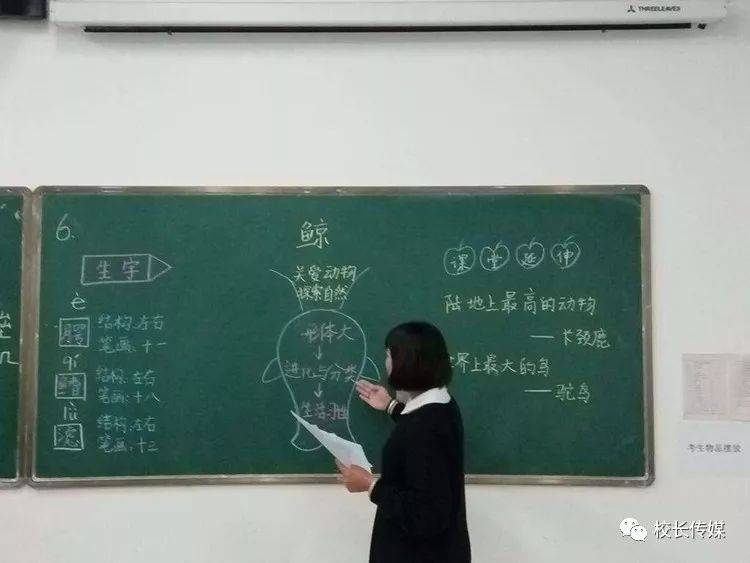 THREELEAVES
6.
鲸
生字
è
腭
结构:左右
笔画:十一
qí
鳍
结构:左右
笔画:十八
lǜ
滤
结构:左右
笔画:十三
关爱动物
探索自然
形体大
进化与分类
生活习性
课堂延伸
陆地上最高的动物
——长颈鹿
世界上最大的鸟
——鸵鸟
考生物品摆放
校长传媒